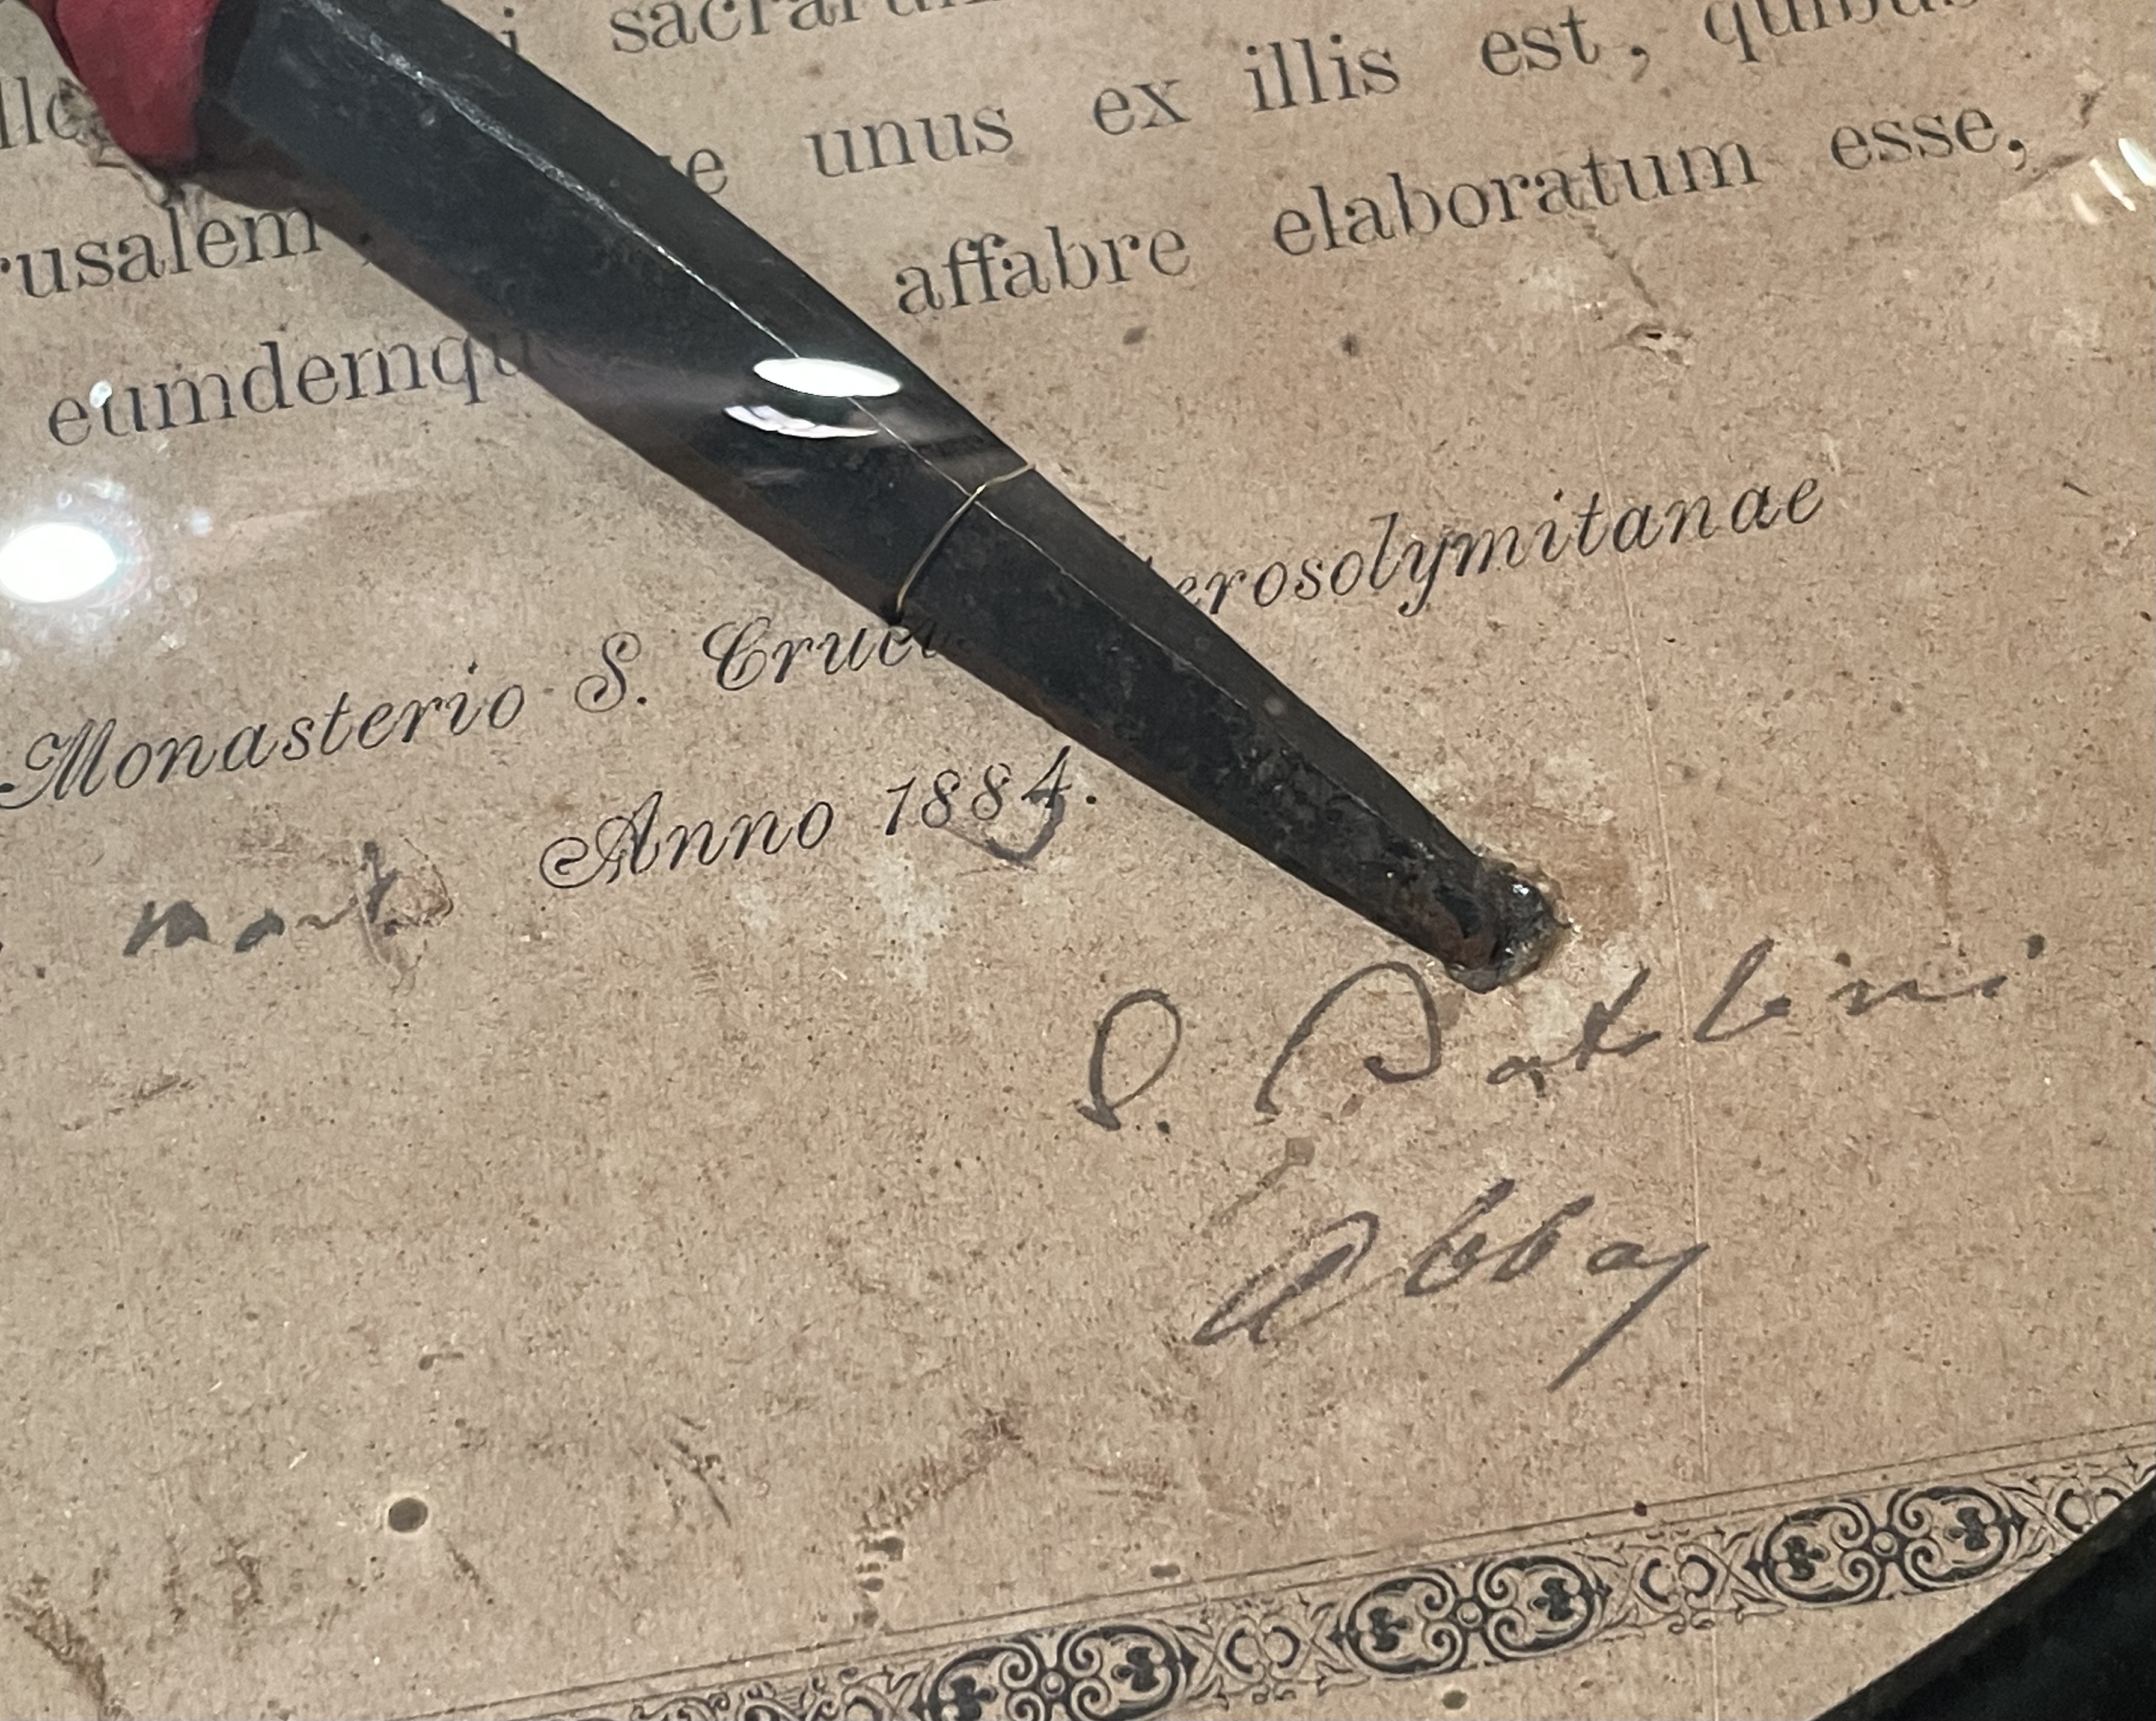 sacrarum
unus ex illis est, quibus
rusalem, affabre elaboratum esse,
eumdemqu
Monasterio S. Cruci erosolymitanae
Anno 1884.
Abbas